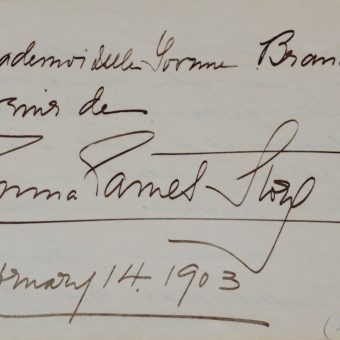 ademoiselle Yvonne Bran
enir de
mma Eames-Story
bruary 14. 1903